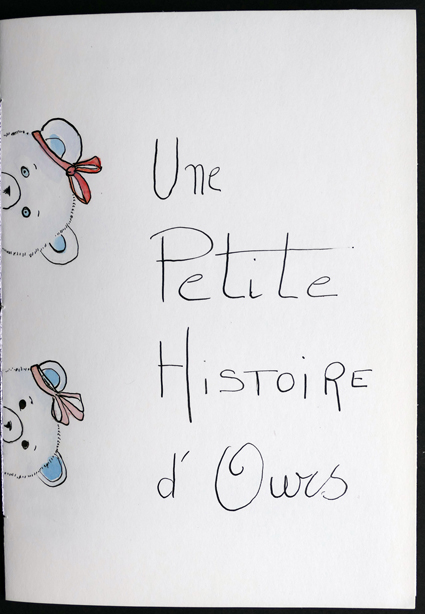 Une
Petite
HISTOIRE
d'Ours